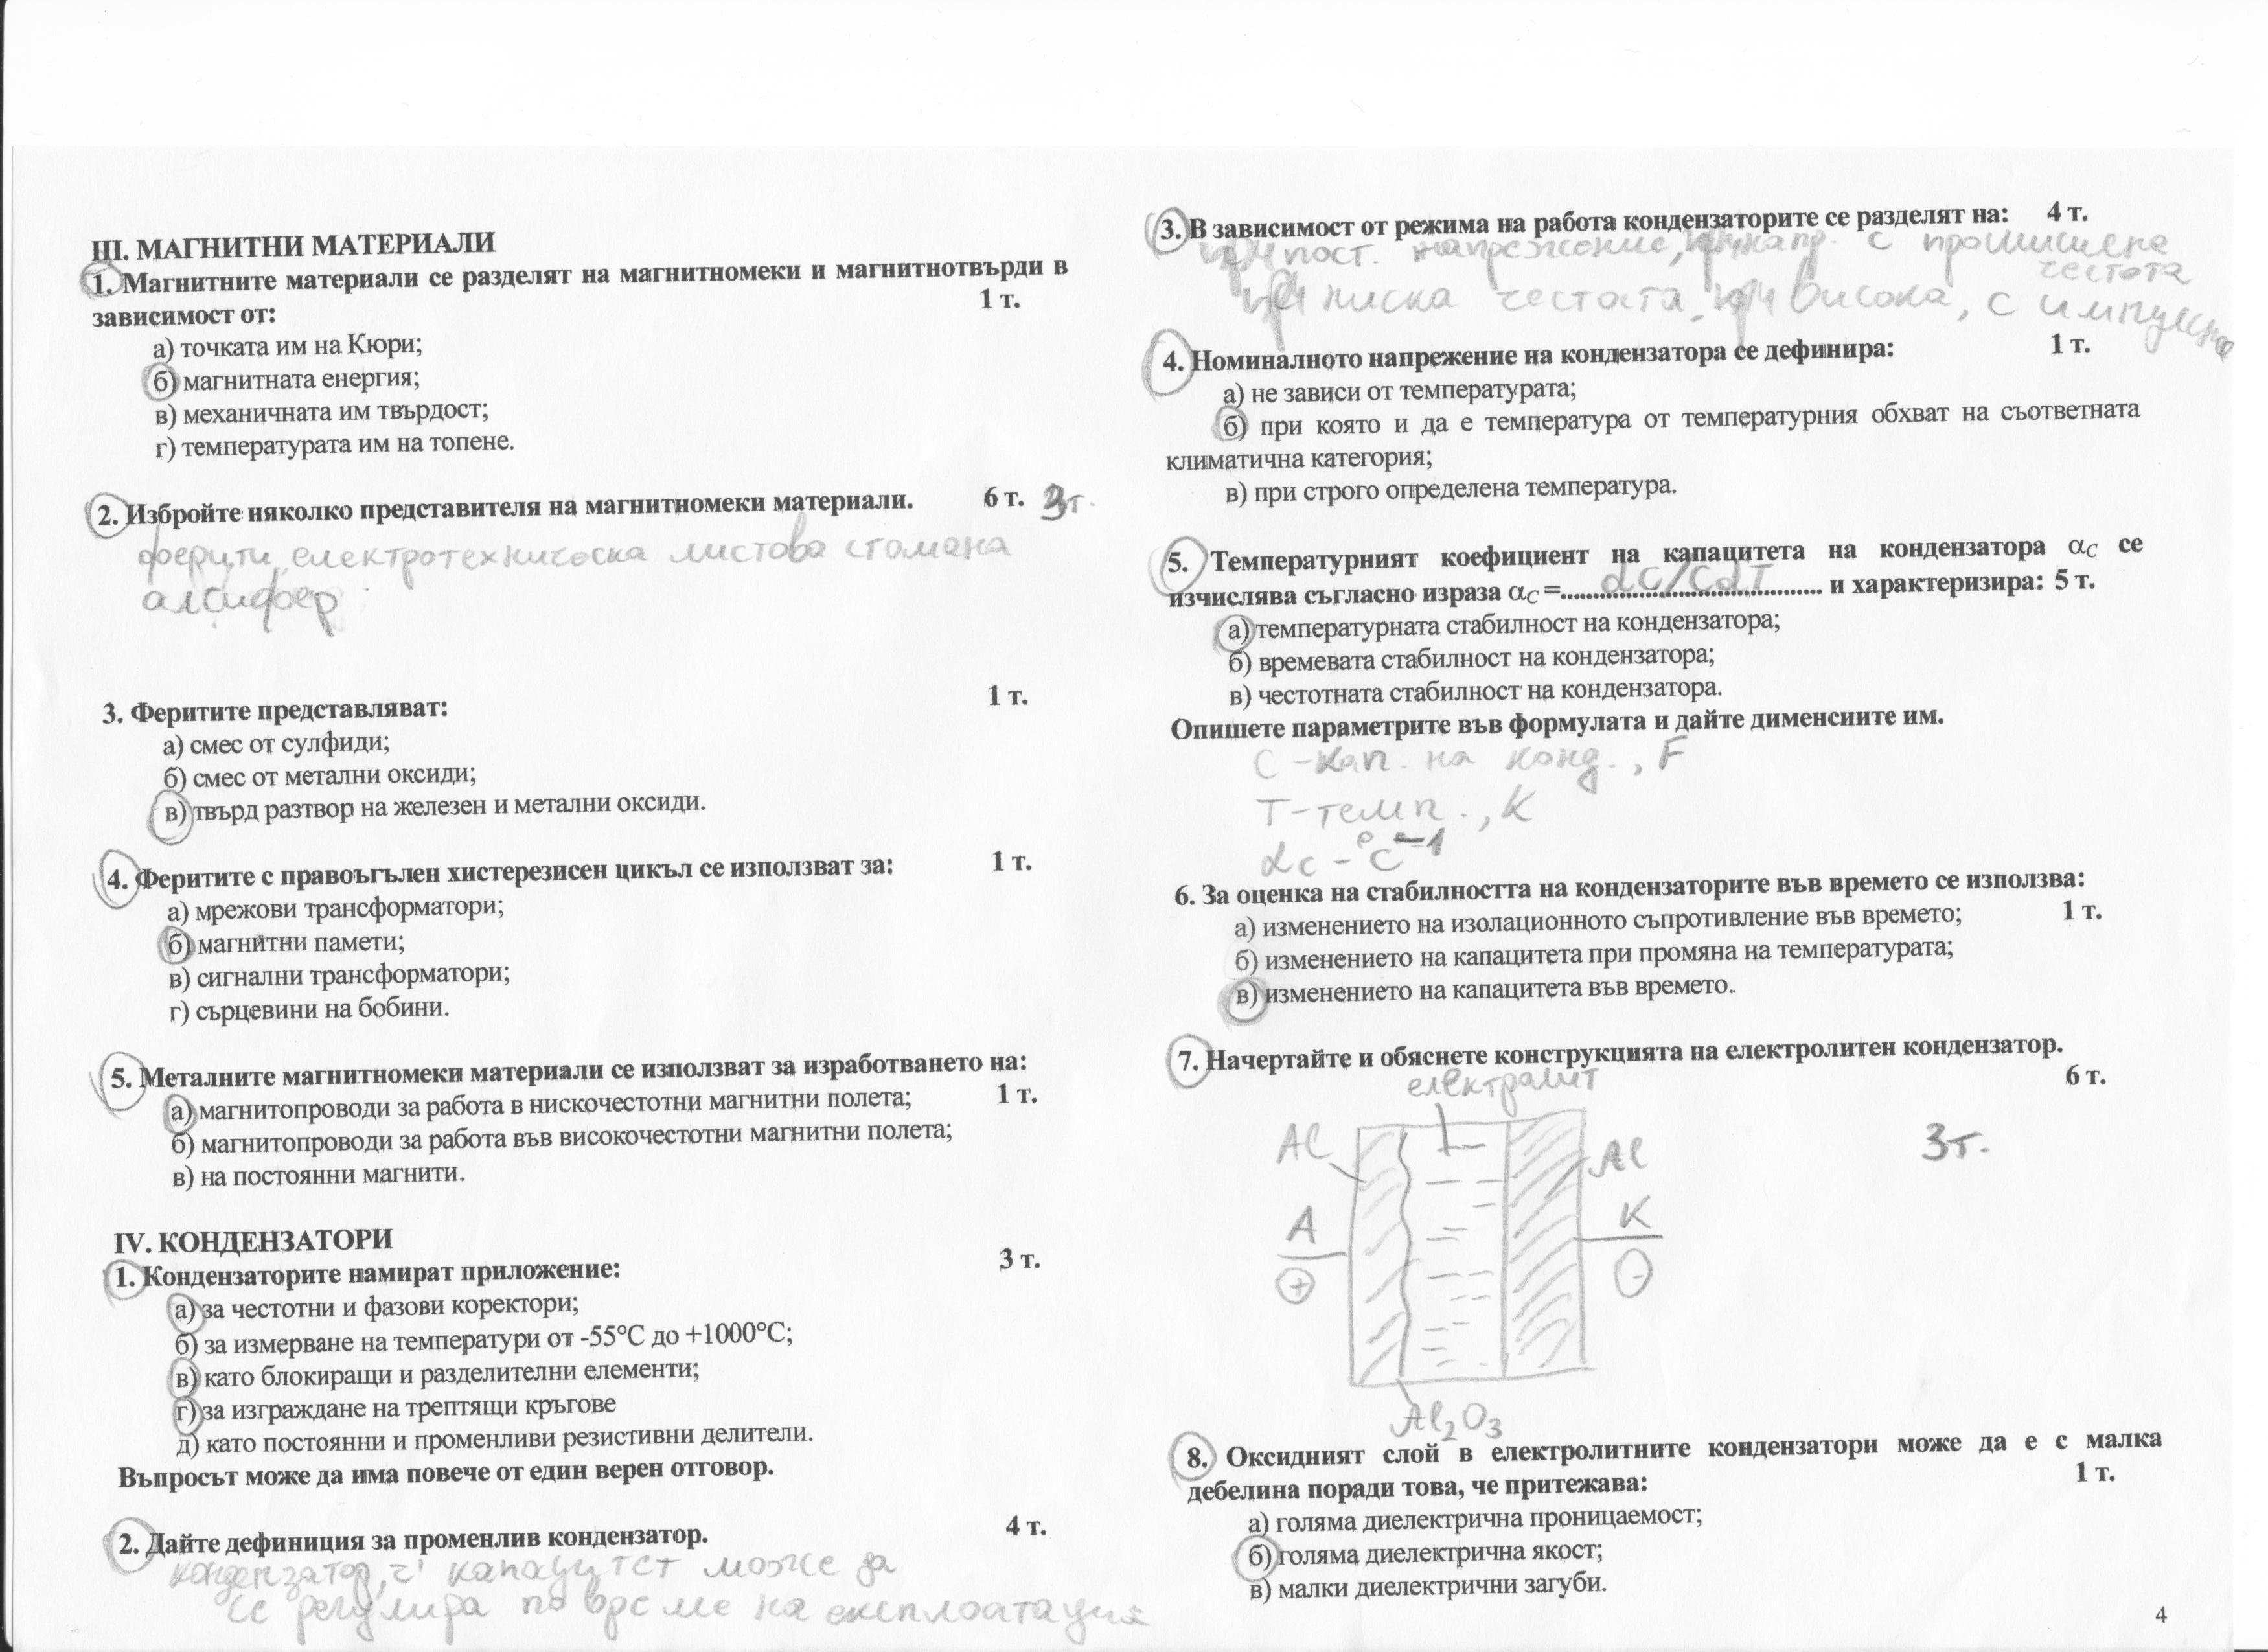 III. МАГНИТНИ МАТЕРИАЛИ
1. Магнитните материали се разделят на магнитномеки и магнитнотвърди в
зависимост от: 1 т.
а) точката им на Кюри;
б) магнитната енергия;
в) механичната им твърдост;
г) температурата им на топене.
2. Избройте няколко представителя на магнитномеки материали. 6 т. 3т.
ферити, електротехническа листова стомана
алсифер
3. Феритите представляват: 1 т.
а) смес от сулфиди;
б) смес от метални оксиди;
в) твърд разтвор на железен и метални оксиди.
4. Феритите с правоъгълен хистерезисен цикъл се използват за: 1 т.
а) мрежови трансформатори;
б) магнитни памети;
в) сигнални трансформатори;
г) сърцевини на бобини.
5. Металните магнитномеки материали се използват за изработването на:
а) магнитопроводи за работа в нискочестотни магнитни полета; 1 т.
б) магнитопроводи за работа във високочестотни магнитни полета;
в) на постоянни магнити.
IV. КОНДЕНЗАТОРИ
1. Кондензаторите намират приложение: 3 т.
а) за честотни и фазови коректори;
б) за измерване на температури от -55°C до +1000°C;
в) като блокиращи и разделителни елементи;
г) за изграждане на трептящи кръгове
д) като постоянни и променливи резистивни делители.
Въпросът може да има повече от един верен отговор.
2. Дайте дефиниция за променлив кондензатор. 4 т.
кондензатор, ч' капацитет може да
се регулира по време на експлоатация
3. В зависимост от режима на работа кондензаторите се разделят на: 4 т.
при пост. напрежение, при напр. с промишлена
честота
при ниска честота, при висока, с импулсно
4. Номиналното напрежение на кондензатора се дефинира: 1 т.
а) не зависи от температурата;
б) при която и да е температура от температурния обхват на съответната
климатична категория;
в) при строго определена температура.
5. Температурният коефициент на капацитета на кондензатора αC се
изчислява съгласно израза αC =.....dC/CdT..... и характеризира: 5 т.
а) температурната стабилност на кондензатора;
б) времевата стабилност на кондензатора;
в) честотната стабилност на кондензатора.
Опишете параметрите във формулата и дайте дименсиите им.
C – кап. на конд., F
T – темп., K
αc – °C⁻¹
6. За оценка на стабилността на кондензаторите във времето се използва:
а) изменението на изолационното съпротивление във времето; 1 т.
б) изменението на капацитета при промяна на температурата;
в) изменението на капацитета във времето.
7. Начертайте и обяснете конструкцията на електролитен кондензатор.
6 т.
електролит
Al Al 3т.
A K
+ -
Al₂O₃
8. Оксидният слой в електролитните кондензатори може да е с малка
дебелина поради това, че притежава: 1 т.
а) голяма диелектрична проницаемост;
б) голяма диелектрична якост;
в) малки диелектрични загуби.
4